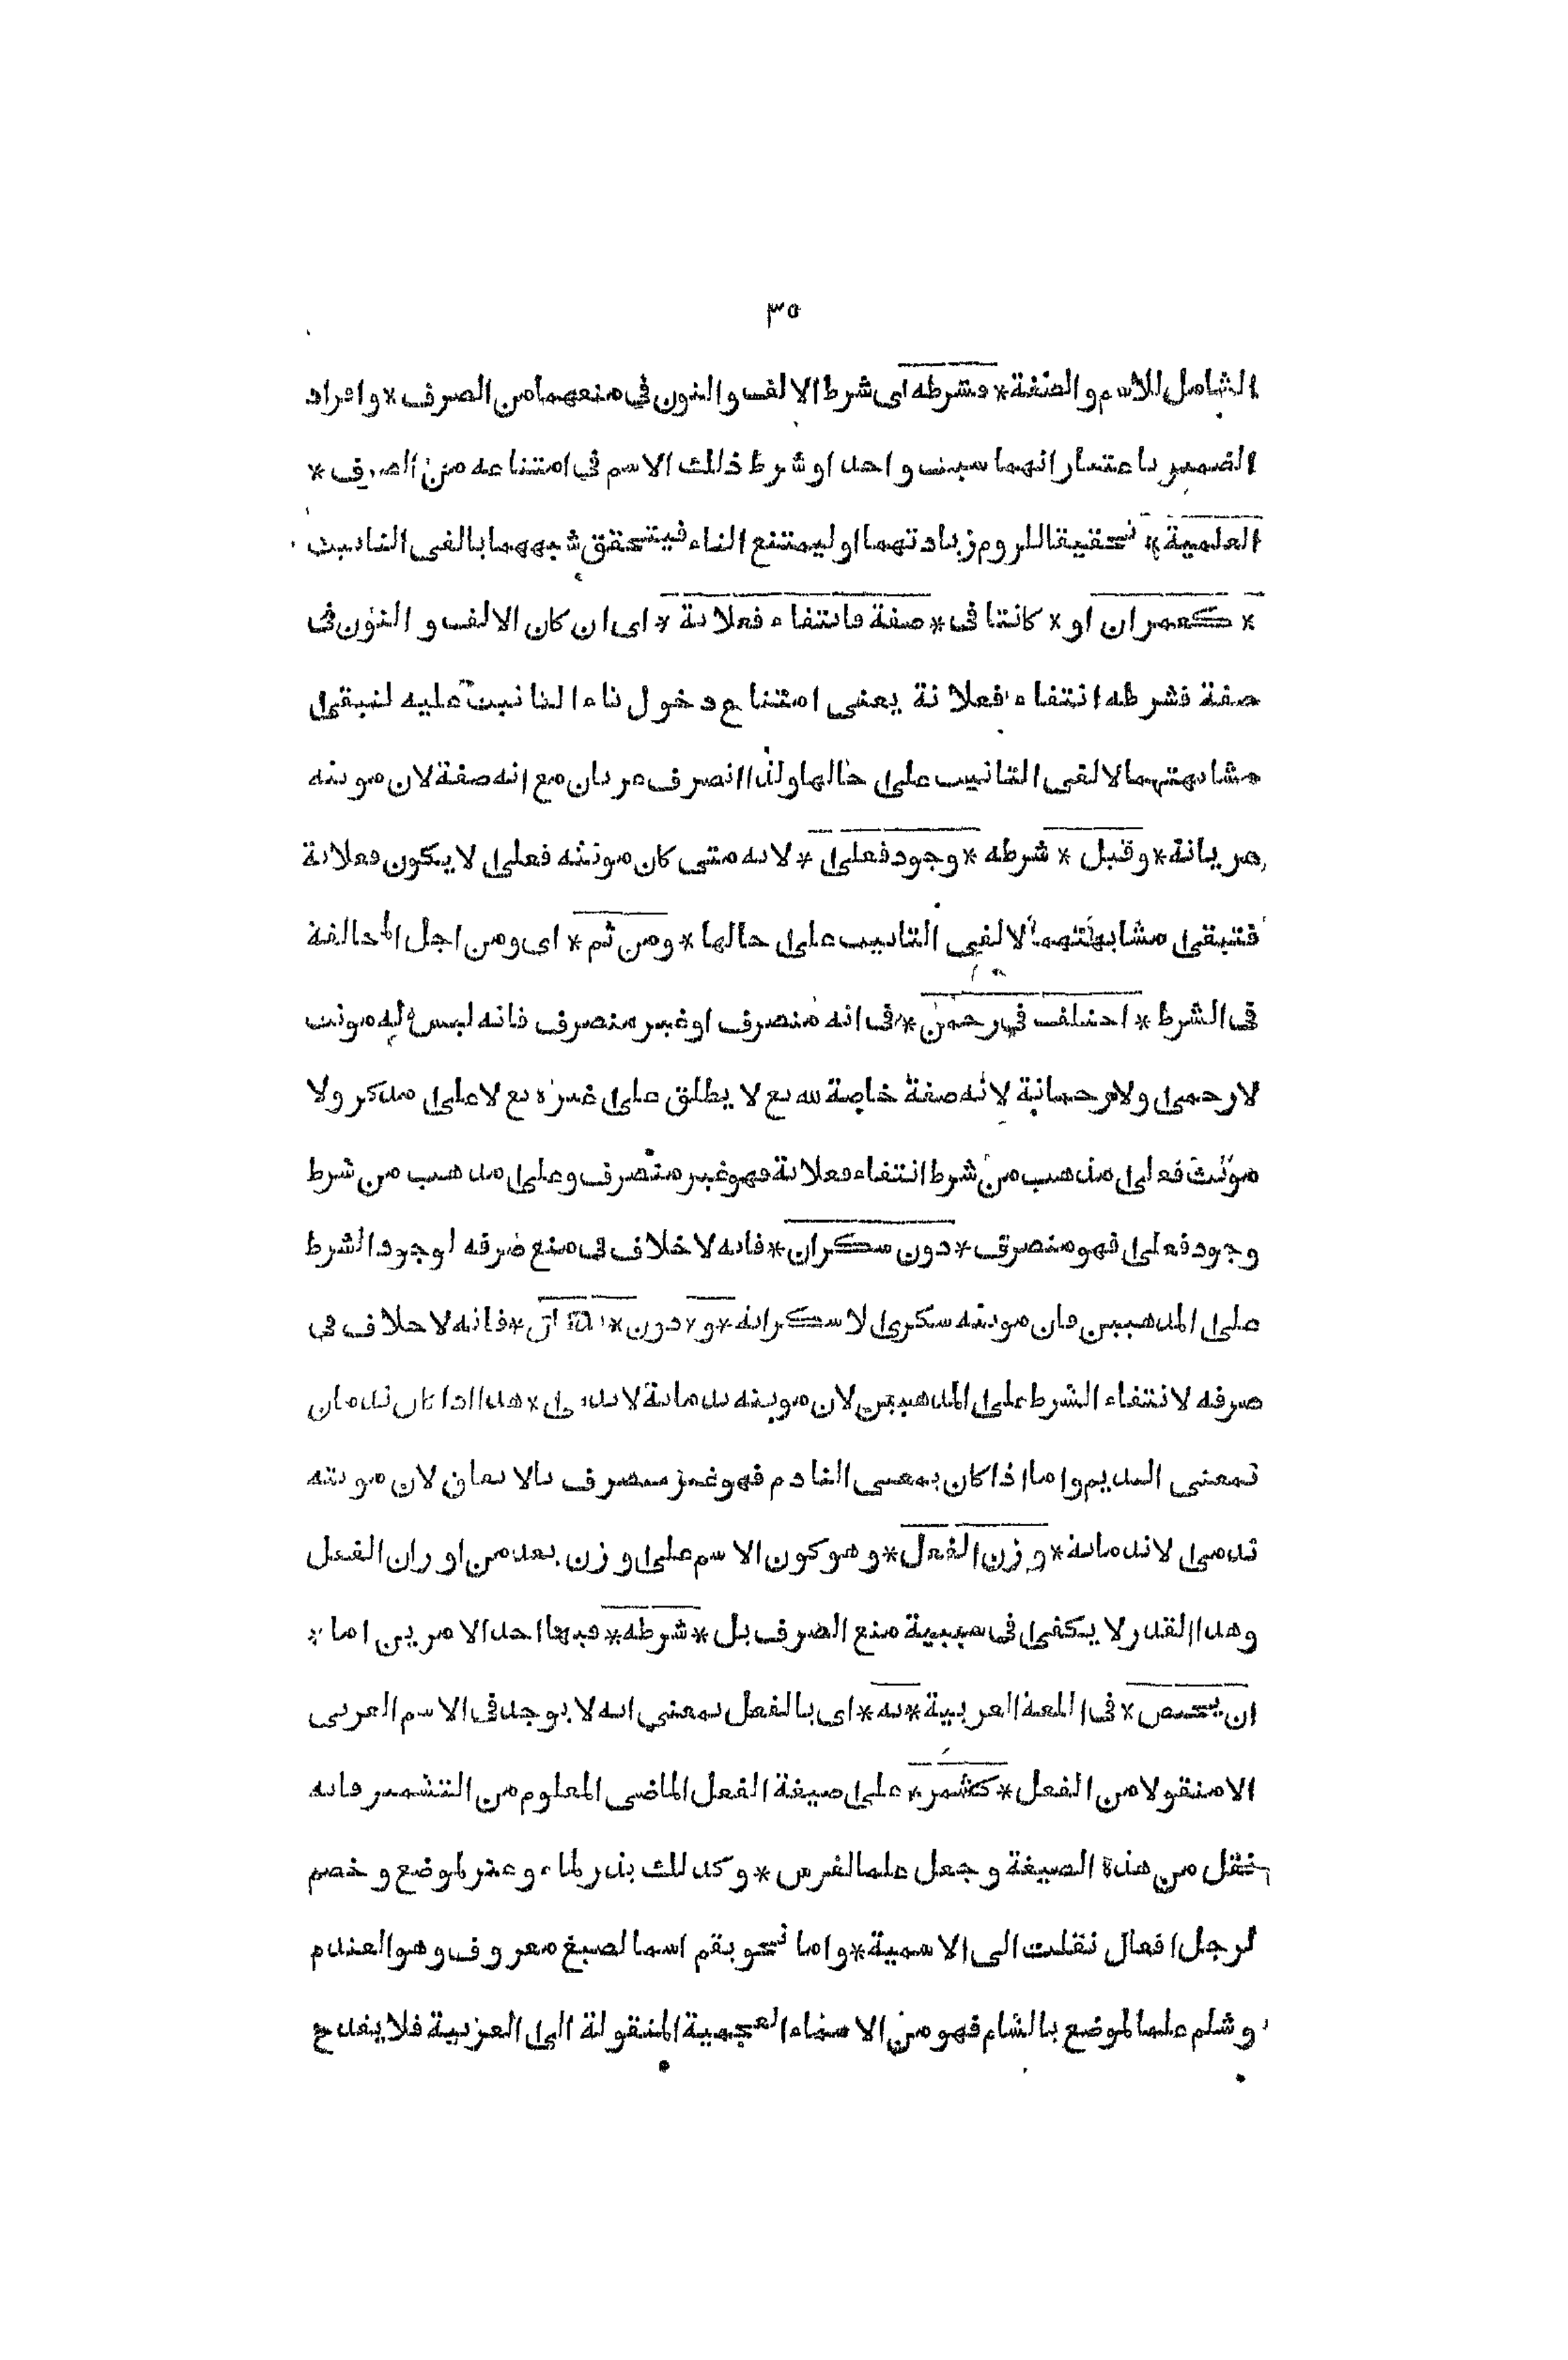 ٣٥
الشامل للاسم والصفة * فشرطه اى شرط الالف والنون فى منعهما من الصرف * وافراد
الضمير باعتبار انهما سبب واحد او شرط ذلك الاسم فى امتناعه من الصرف *
العلمية * تحقيقا للزوم زيادتهما او ليمتنع التاء فيتحقق شبههما بالفى التانيث
* كعمران او * كانتا فى * صفة فانتفاء فعلانة * اى ان كان الالف و النون فى
صفة فشرطه انتفاء فعلانة يعنى امتناع دخول تاء التانيث عليه لتبقى
مشابهتهما لالفى التانيث على حالها ولذا انصرف عريان مع انه صفة لان مونثه
عريانة * وقيل * شرطه * وجود فعلى * لانه متى كان مونثه فعلى لا يكون فعلانة
فتبقى مشابهتهما لالفى التانيث على حالها * ومن ثم * اى ومن اجل المخالفة
فى الشرط * اختلف فى رحمن * فى انه منصرف او غير منصرف فانه ليس له مونث
لا رحمى ولا رحمانة لانه صفة خاصة لله تع لا يطلق على غيره تع لا على مذكر ولا
مونث فعلى مذهب من شرط انتفاء فعلانة فهو غير منصرف وعلى مذهب من شرط
وجود فعلى فهو منصرف * دون سكران * فانه لا خلاف فى منع صرفه لوجود الشرط
على المذهبين فان مونثه سكرى لا سكرانة * و * دون * ندمان * فانه لا خلاف فى
صرفه لانتفاء الشرط على المذهبين لان مونثه ندمانة لا ندمى * هذا اذا كان ندمان
بمعنى النديم واما اذا كان بمعنى النادم فهو غير منصرف بالاتفاق لان مونثه
ندمى لا ندمانة * وزن الفعل * و هو كون الاسم على وزن يعد من اوزان الفعل
وهذا القدر لا يكفى فى سببية منع الصرف بل * شرطه * فيها احد الامرين اما *
ان يختص * فى اللغة العربية * به * اى بالفعل بمعنى انه لا يوجد فى الاسم العربى
الا منقولا من الفعل * كشمر * على صيغة الفعل الماضى المعلوم من التشمير فانه
نقل من هذه الصيغة و جعل علما لفرس * و كذلك بذر لماء و عثر لموضع و خضم
لرجل افعال نقلت الى الاسمية * واما نحو بقم اسما لصبغ معروف وهو العندم
و شلم علما لموضع بالشام فهو من الاسماء العجمية المنقولة الى العربية فلا يقدح